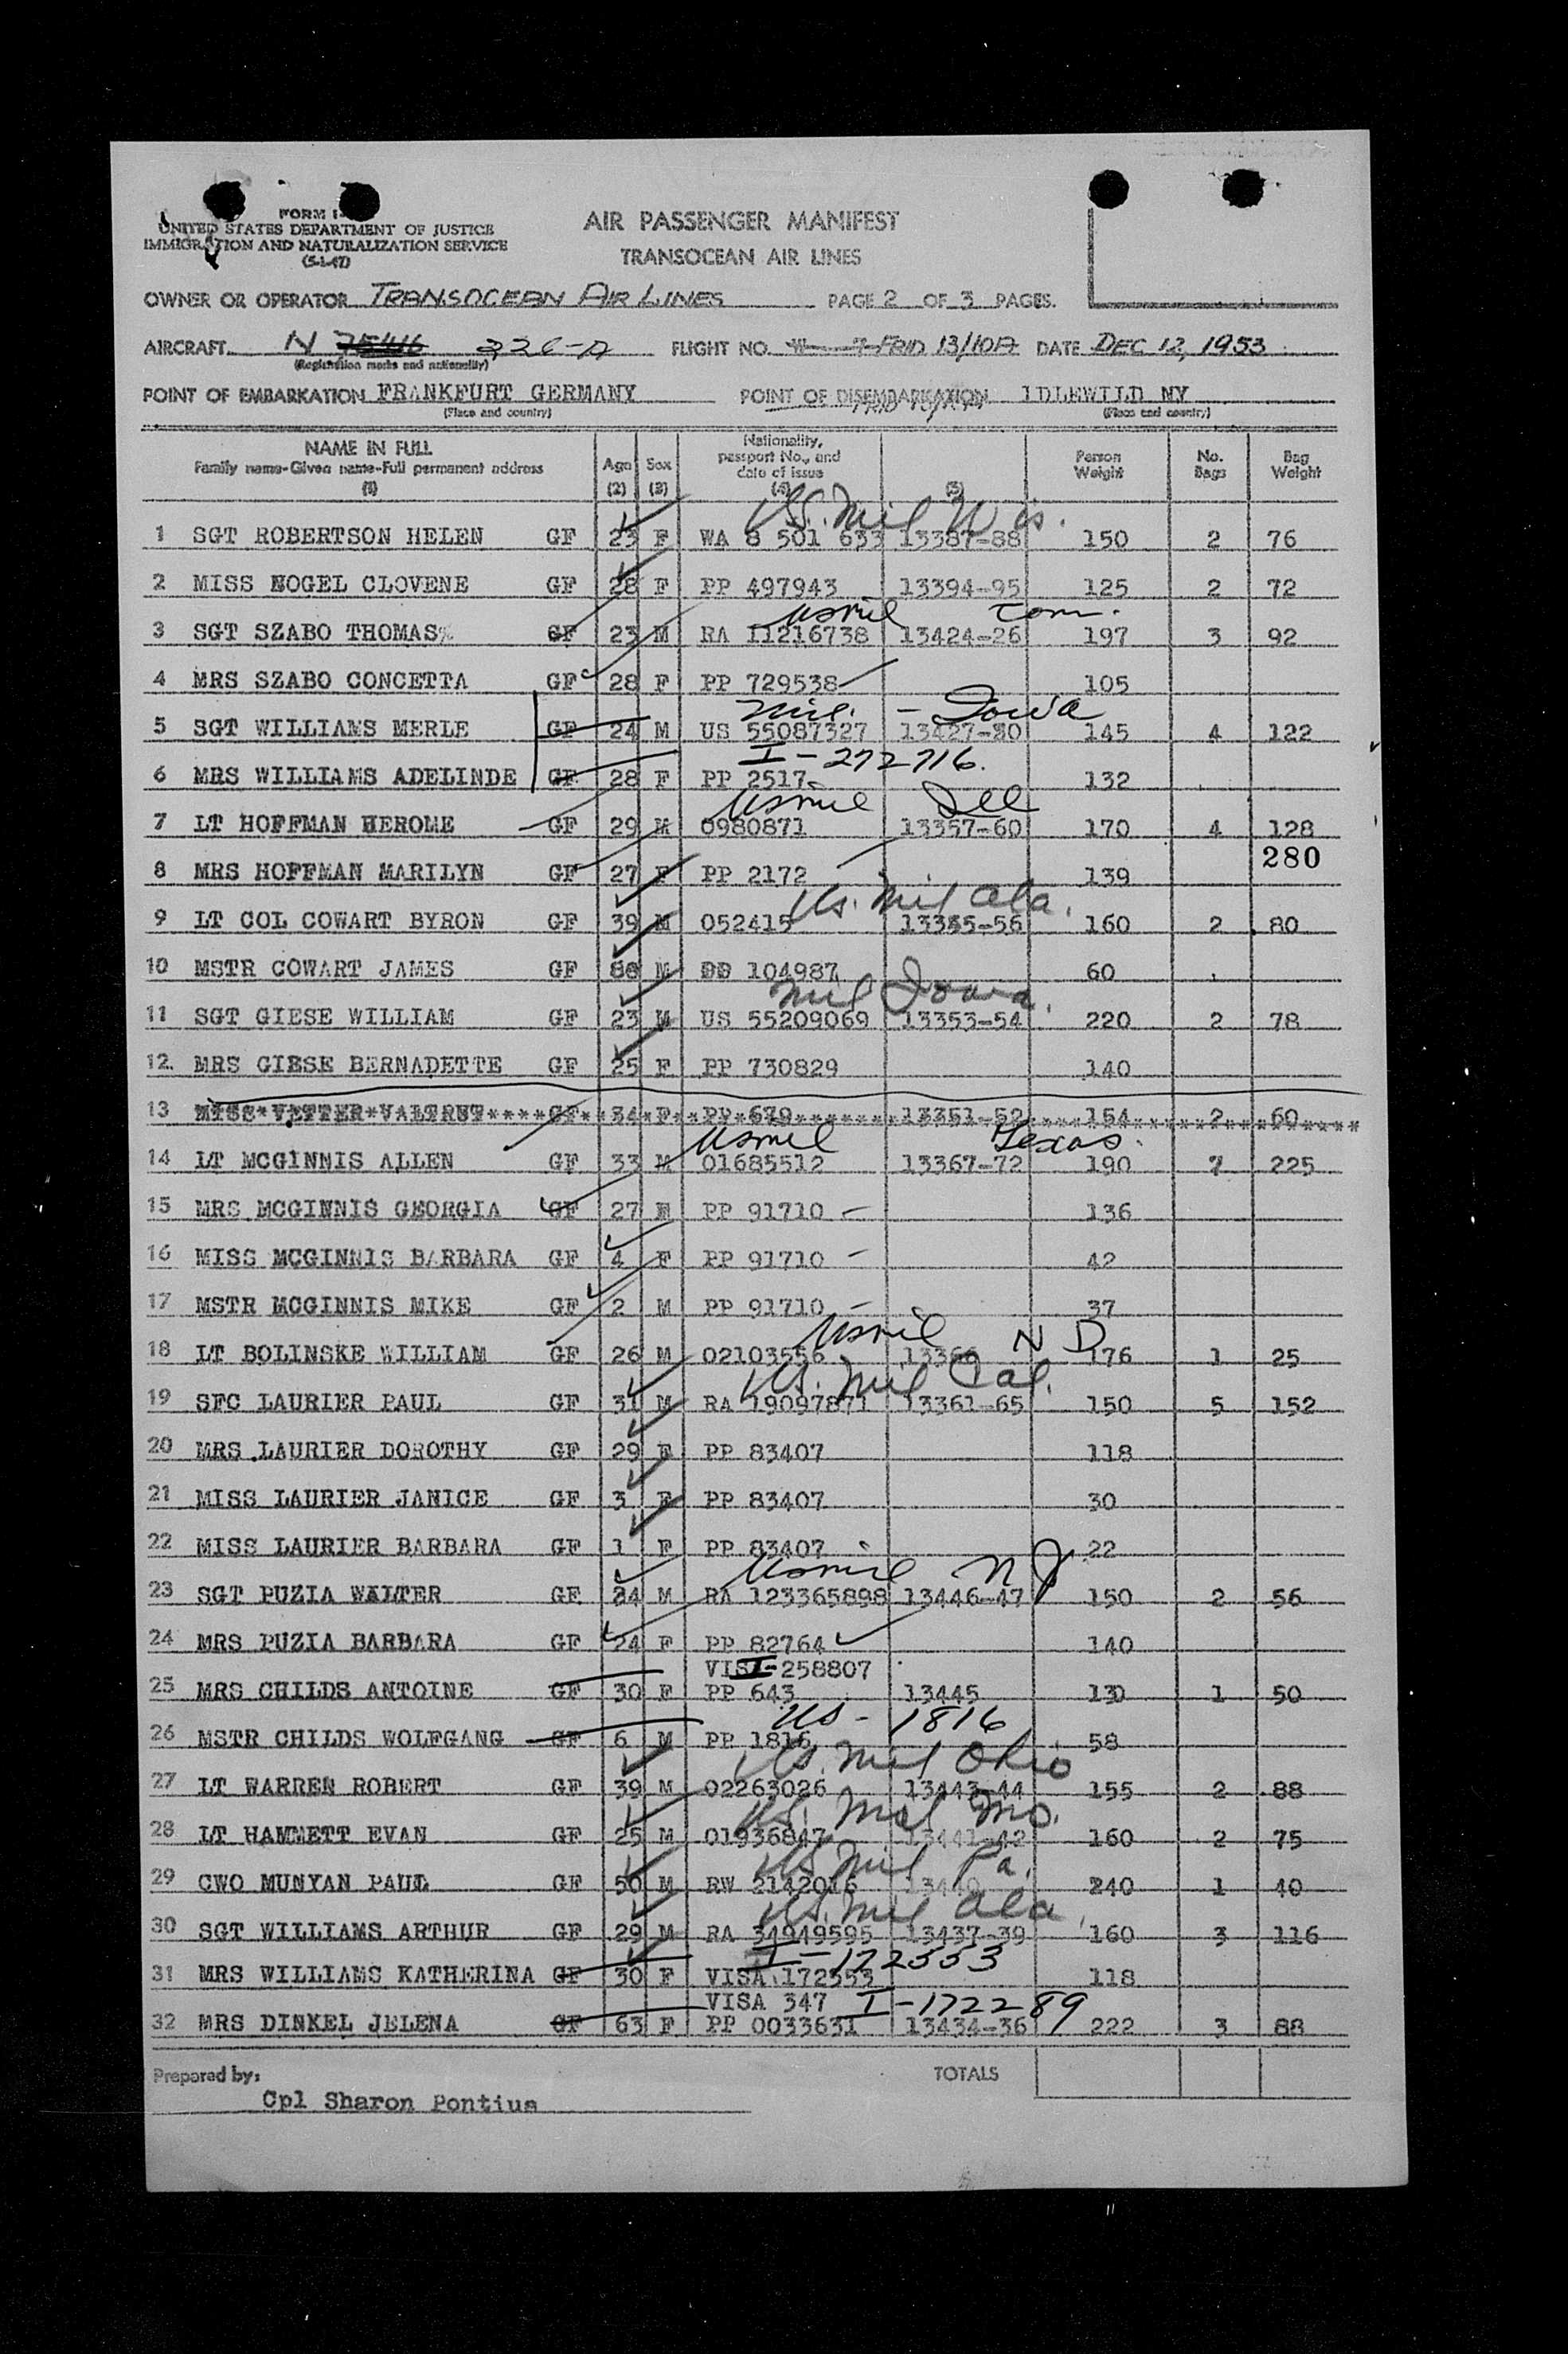 FORM I-
UNITED STATES DEPARTMENT OF JUSTICE
IMMIGRATION AND NATURALIZATION SERVICE
(5-1-47)
AIR PASSENGER MANIFEST
TRANSOCEAN AIR LINES
OWNER OR OPERATOR TRANSOCEAN AIR LINES PAGE 2 OF 3 PAGES.
AIRCRAFT N 226-A FLIGHT NO. FRID 13/10A DATE DEC 12, 1953
(Registration marks and nationality)
POINT OF EMBARKATION FRANKFURT GERMANY POINT OF DISEMBARKATION IDLEWILD NY
(Place and country) (Place and country)
NAME IN FULL Family name-Given name-Full permanent address (1) Age (2) Sex (3) Nationality, passport No., and date of issue (4) (5) Person Weight No. Bags Bag Weight
US. Mil Wis.
1 SGT ROBERTSON HELEN GF 23 F WA 8 501 633 13387-88 150 2 76
2 MISS NOGEL CLOVENE GF 28 F PP 497943 13394-95 125 2 72
usmil conn.
3 SGT SZABO THOMAS GF 23 M RA 11216738 13424-26 197 3 92
4 MRS SZABO CONCETTA GF 28 F PP 729538 105
mil. - Iowa
5 SGT WILLIAMS MERLE GF 24 M US 55087327 13427-30 145 4 122
I-272716.
6 MRS WILLIAMS ADELINDE GF 28 F PP 2517 132
usmil Ill
7 LT HOFFMAN HEROME GF 29 M 0980871 13357-60 170 4 128
280
8 MRS HOFFMAN MARILYN GF 27 F PP 2172 139
US. Mil Ala.
9 LT COL COWART BYRON GF 39 M 052415 13355-56 160 2 80
10 MSTR COWART JAMES GF M DD 104987 60
mil Iowa.
11 SGT GIESE WILLIAM GF 23 M US 55209069 13353-54 220 2 78
12. MRS GIESE BERNADETTE GF 25 F PP 730829 140
13 MISS*VETTER*VALTRUT****GF**34*F**PP*679*******13351-52****154****2***60****
usmil Texas.
14 LT MCGINNIS ALLEN GF 33 M 01685512 13367-72 190 7 225
15 MRS MCGINNIS GEORGIA GF 27 F PP 91710 136
16 MISS MCGINNIS BARBARA GF 4 F PP 91710 42
17 MSTR MCGINNIS MIKE GF 2 M PP 91710 37
usmil N D
18 LT BOLINSKE WILLIAM GF 26 M 02103556 13366 176 1 25
US. Mil Cal.
19 SFC LAURIER PAUL GF 31 M RA 19097871 13361-65 150 5 152
20 MRS LAURIER DOROTHY GF 29 F PP 83407 118
21 MISS LAURIER JANICE GF 3 F PP 83407 30
22 MISS LAURIER BARBARA GF 1 F PP 83407 22
usmil N J
23 SGT PUZIA WALTER GF 24 M RA 123365898 13446-47 150 2 56
24 MRS PUZIA BARBARA GF 24 F PP 82764 140
VIS I-258807
25 MRS CHILDS ANTOINE GF 30 F PP 643 13445 130 1 50
US - 1816
26 MSTR CHILDS WOLFGANG GF 6 M PP 1816 58
US. Mil Ohio
27 LT WARREN ROBERT GF 39 M 02263026 13443-44 155 2 88
US. Mil Mo.
28 LT HAMMETT EVAN GF 25 M 01936847 13441-42 160 2 75
US Mil Pa.
29 CWO MUNYAN PAUL GF 50 M RW 2142016 13440 240 1 40
US. Mil Ala.
30 SGT WILLIAMS ARTHUR GF 29 M RA 34949595 13437-39 160 3 116
I-172553
31 MRS WILLIAMS KATHERINA GF 30 F VISA 172553 118
VISA 347 I-172289
32 MRS DINKEL JELENA GF 63 F PP 0033631 13434-36 222 3 88
Prepared by: TOTALS
Cpl Sharon Pontius